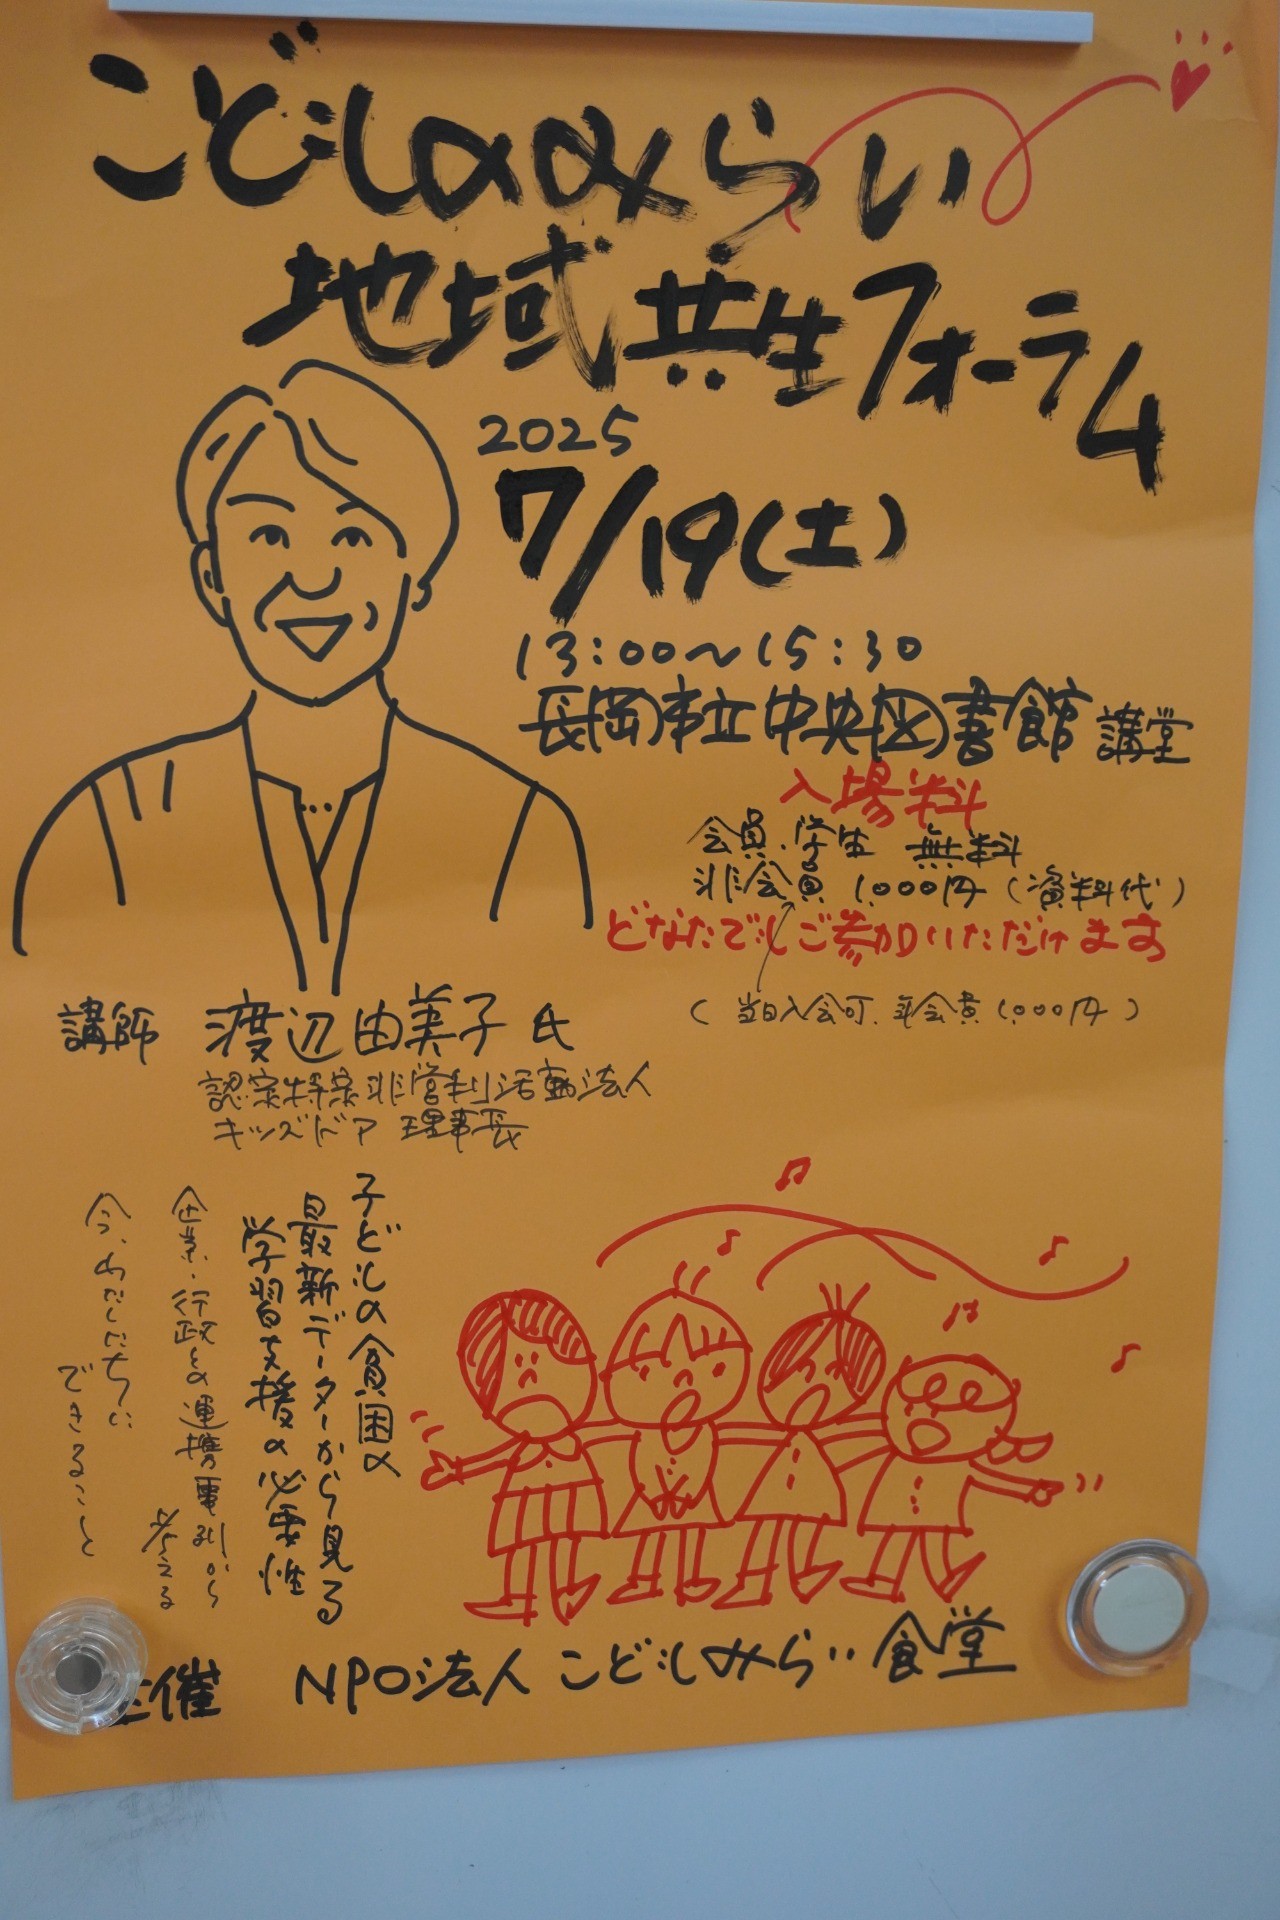 こどものみらい
地域共生フォーラム
2025
7/19(土)
13:00～15:30
長岡市立中央図書館 講堂
入場料
会員、学生 無料
非会員 1,000円(資料代)
どなたでもご参加いただけます
(当日入会可、年会費1,000円)
講師 渡辺由美子氏
認定特定非営利活動法人
キッズドア 理事長
子どもの貧困の
最新データーから見る
学習支援の必要性
企業、行政との連携事例から
考える
今、わたしたちに
できること
主催 NPO法人 こどもみらい食堂